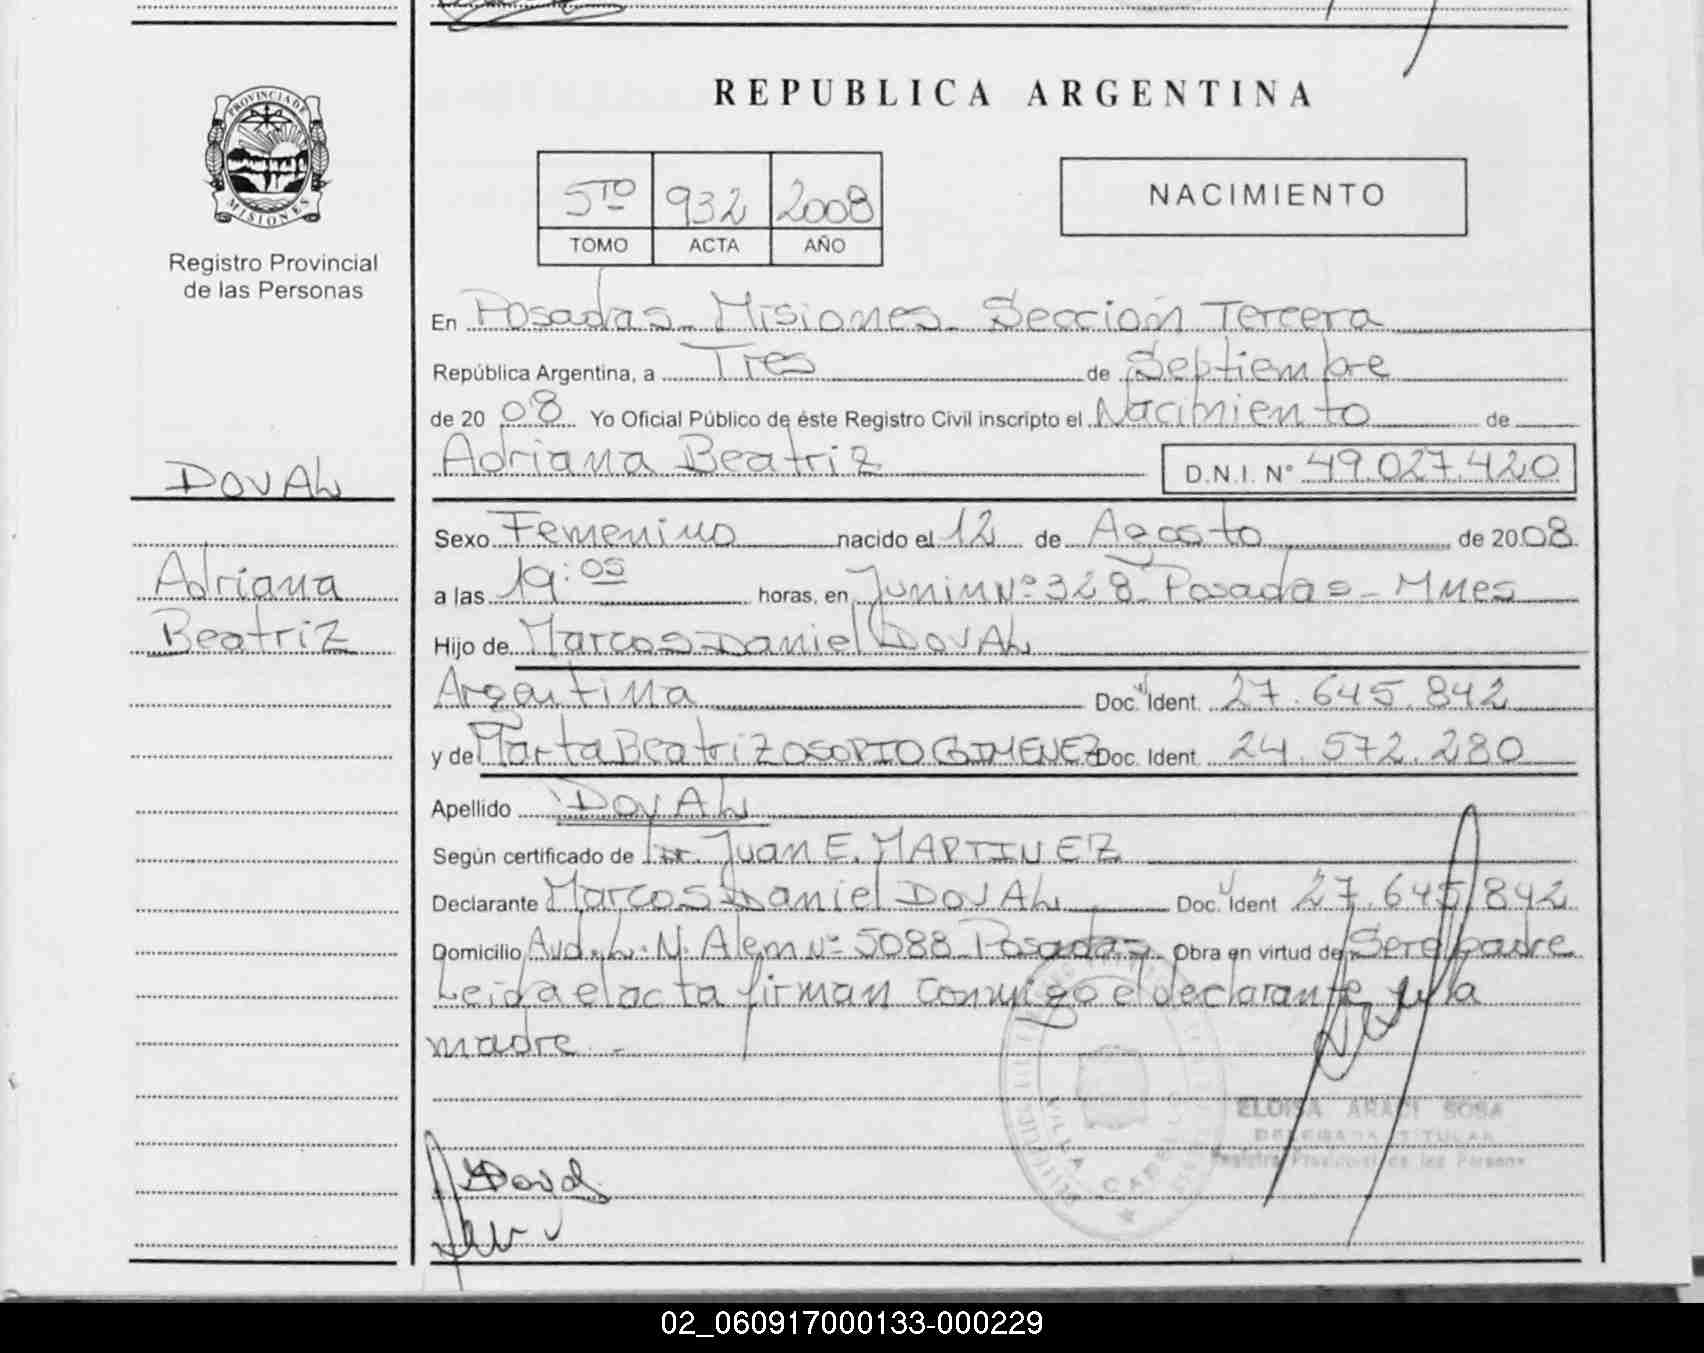 REPUBLICA ARGENTINA
PROVINCIA DE
MISIONES
Registro Provincial
de las Personas
5TO 932 2008
TOMO ACTA AÑO
NACIMIENTO
En Posadas - Misiones - Sección Tercera
República Argentina, a Tres de Septiembre
de 20 08 Yo Oficial Público de éste Registro Civil inscripto el Nacimiento de
Adriana Beatriz D.N.I. N° 49.027.420
DOVAL
Adriana
Beatriz
Sexo Femenino nacido el 12 de Agosto de 2008
a las 19:05 horas, en Junin Nº 328 - Posadas - Mnes
Hijo de Marcos Daniel DOVAL
Argentina Doc. Ident. 27.645.842
y de Marta Beatriz OSORIO GIMENEZ Doc. Ident. 24.572.280
Apellido DOVAL
Según certificado de Dr. Juan E. MARTINEZ
Declarante Marcos Daniel DOVAL Doc. Ident 27.645.842
Domicilio Avda. L. N. Alem Nº 5088 - Posadas Obra en virtud de Ser el padre
Leida el acta firman conmigo el declarante y la
madre. -
ELOISA ARACI SOSA
DELEGADA TITULAR
Registro Provincial de las Personas
VILLA CABELLO
Doval
02_060917000133-000229